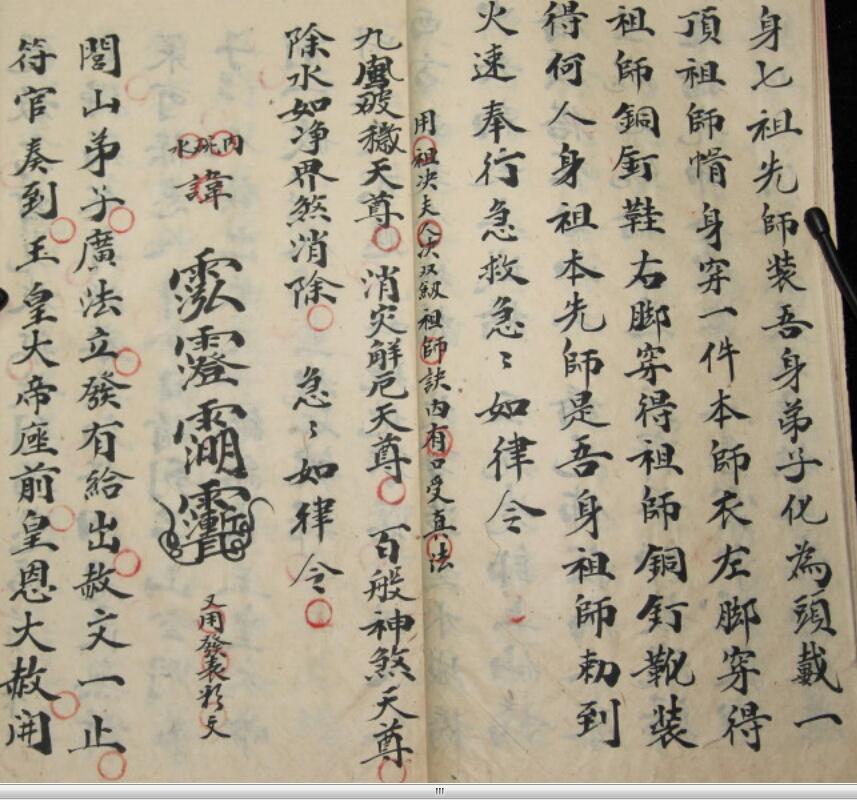 身七祖先師装吾身弟子化為頭戴一
頂祖師帽身穿一件本師衣左脚穿得
祖師銅釘鞋右脚穿得祖師銅釘靴装
得何人身祖本先師是吾身祖師勅到
火速奉行急救急〻如律令
用祖决夫人决双級祖師訣内有口受真法
九鳳破穢天尊 消灾解厄天尊 百般神煞天尊
除水如净界煞消除 急〻如律令
内碗水
諱
泓澄
又用發表彩天
閭山弟子廣法立發有給出赦文一止
符官奏到玉皇大帝座前皇恩大赦開